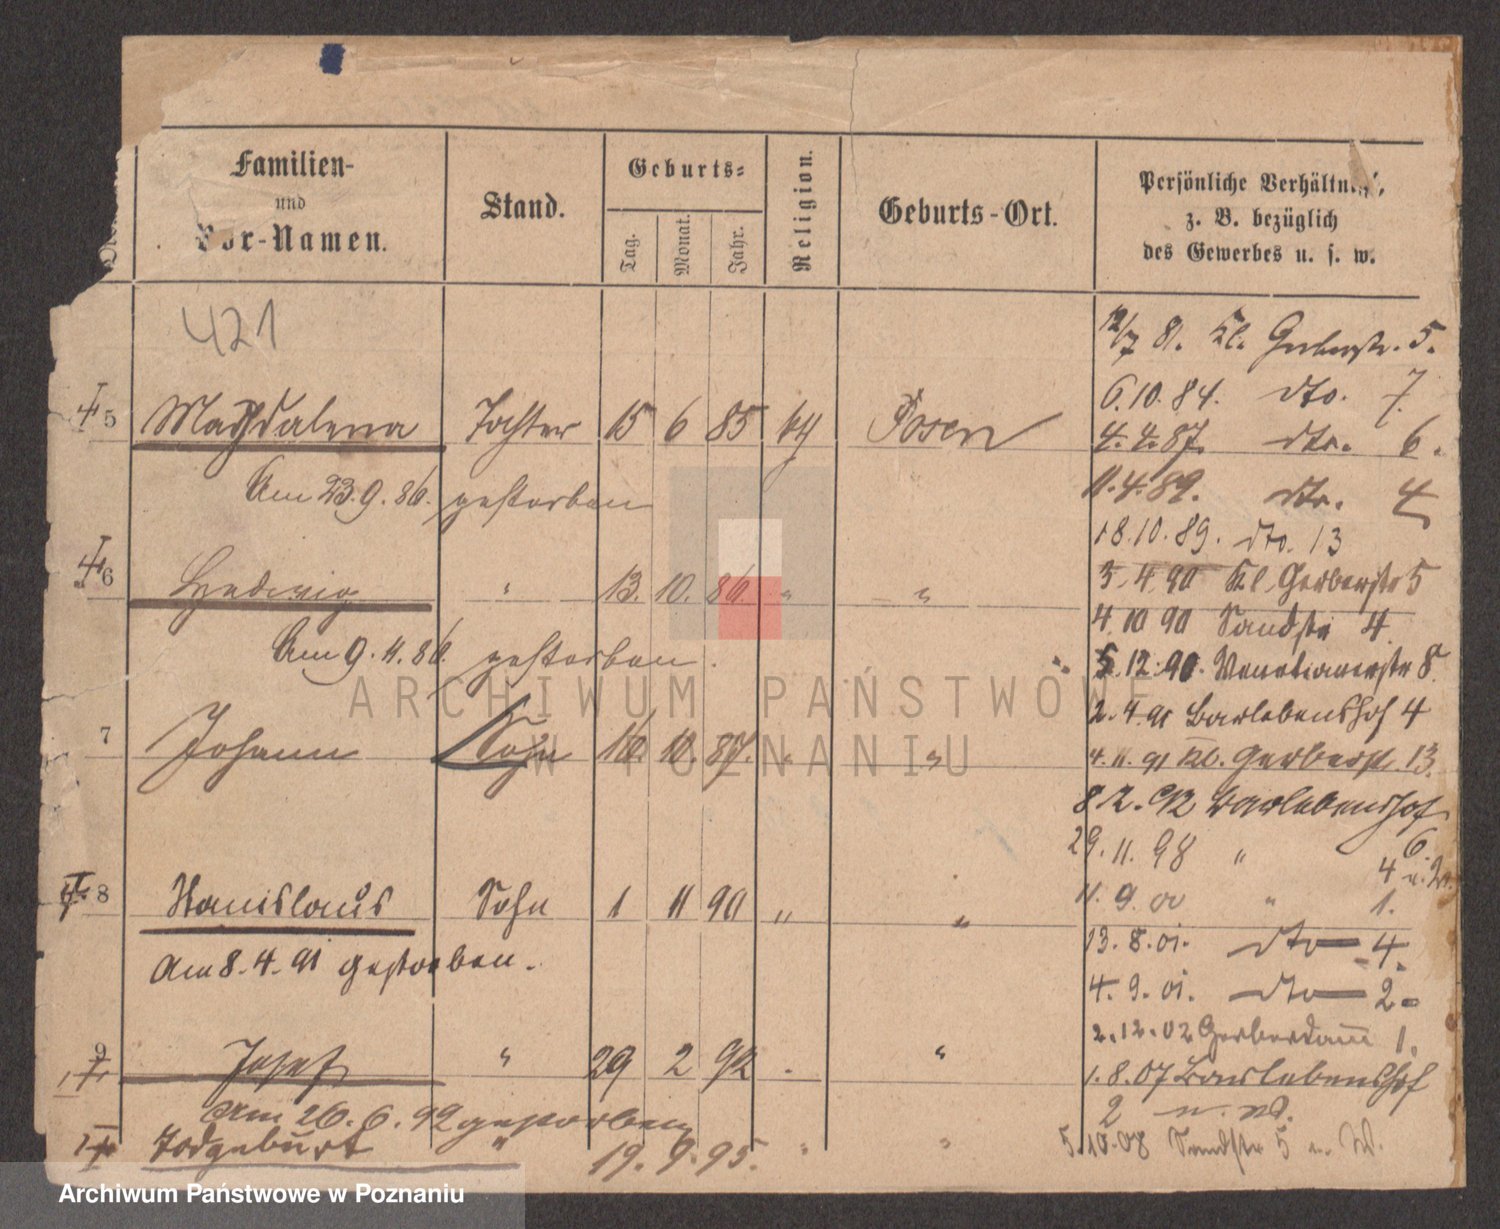 Familien-
und
Vor-Namen.
Stand.
Geburts-
Tag.
Monat.
Jahr.
Religion.
Geburts-Ort.
Persönliche Verhältni
z. B. bezüglich
des Gewerbes u. s. w.
421
12/7 81. Kl. Gerberstr. 5.
6.10.84. dto. 7.
5 Magdalena Tochter 15 6 85 Posen
4.4.87. dto. 6.
Am 23.9.86. gestorben
11.4.89. dto. 4
18.10.89. dto. 13
6 Hedwig " 13. 10. 86. " "
3.4.90 Kl. Gerberstr 5
4.10 90 Sandstr 4.
Am 9.11.86. gestorben.
5.12.90. Venetianerstr 8.
2.4.91 Barlebenshof 4
7 Johann Sohn 16. 10. 87. " "
4.11.91 Kl. Gerberst. 13.
8 2. 92 Barlebenshof
6.
29.11.98 " 4 u.
8 Stanislaus Sohn 1 11 90 " "
11.9.00 " 1.
13.8.01. dto 4.
Am 8.4.91 gestorben.
4.9.01. dto 2.
2.12.02 Gerberdamm 1.
9 Josef " 29 2 92 "
1.8.07 Barlebenshof
2
Am 26.6.92 gestorben
Todgeburt " 19. 9. 95. " "
5.10.08 Sandstr 5 u. W.
ARCHIWUM PAŃSTWOWE
W POZNANIU
Archiwum Państwowe w Poznaniu